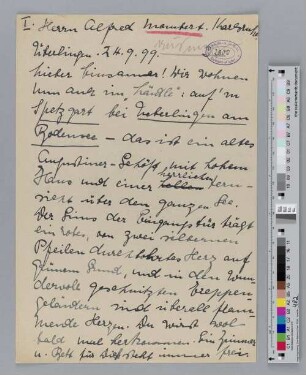 I. Herrn Alfred Mombert. Karlsruhe
Überlingen. 24.9.99.
Lieber Einsamer! Wir wohnen
nun auf'm
Spetzgart bei Ueberlingen am
Bodensee – das ist ein altes
Augustiner-Gehöft, mit hohem
Haus und einer herrlichen Fern-
sicht über den ganzen See.
Der Sims der Eingangstür trägt
ein rotes, von zwei silbernen
Pfeilen durchbohrtes Herz auf
grünem Grund, und in den wun-
dervoll geschnitzten Treppen-
geländern sind überall flam-
mende Herzen. Du wirst wol
bald mal herkommen. Ein Zimmer
u. Bett für Dich steht immer frei